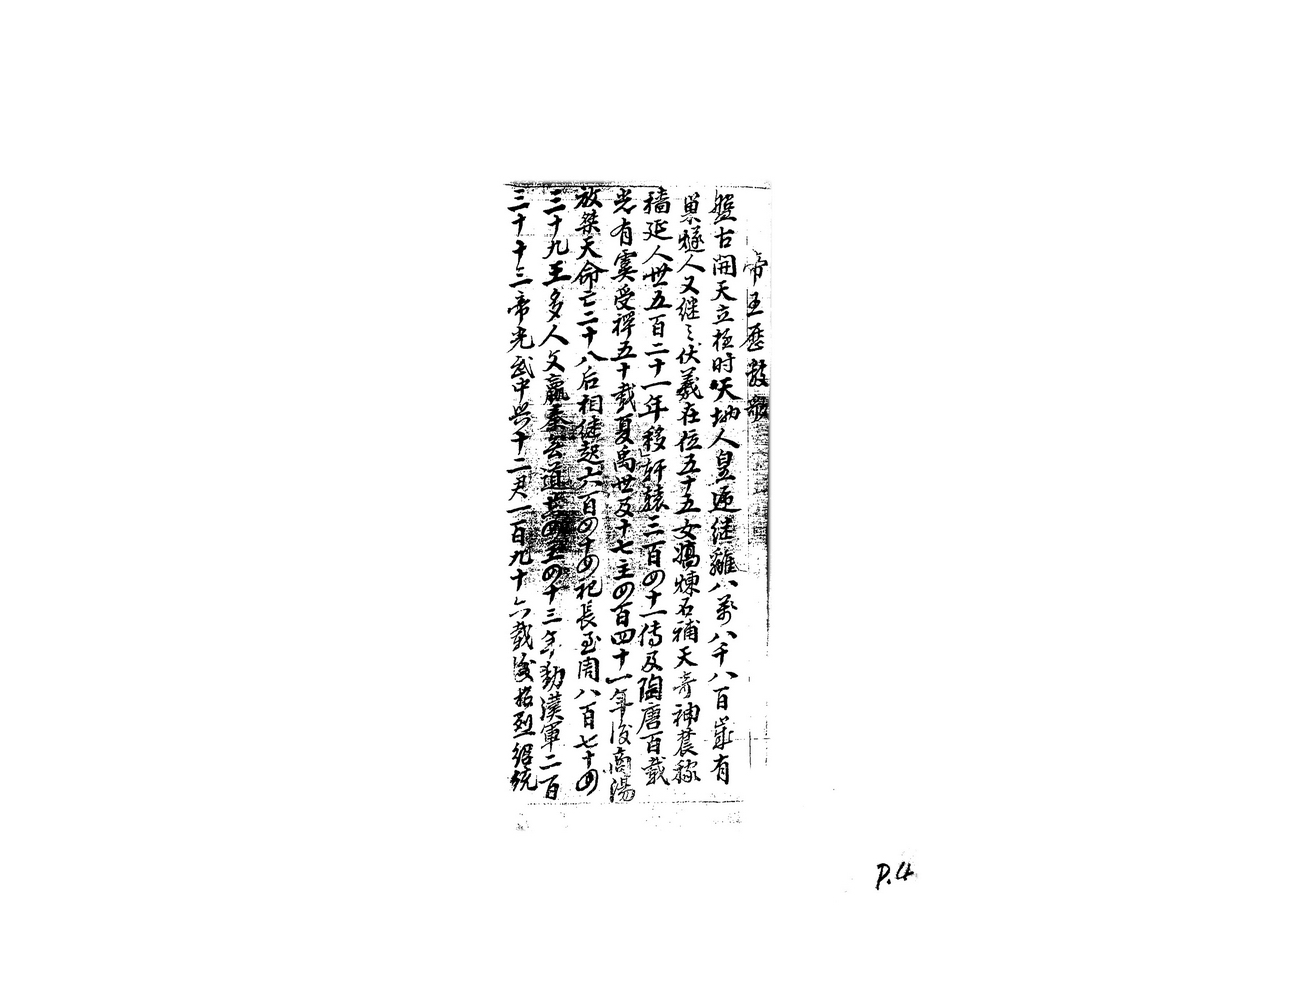 帝王歷數歌
盤古開天立極時天地人皇逓継離八萬八千八百歲有
巢燧人又継〻伏羲在位五十五女媧煉石補天奇神農稼
穡延人世五百二十一年移軒轅三百四十一傳及陶唐百載
光有虞受禪五十載夏禹世及十七主四百四十一年後商湯
放桀天命亡二十八后相継起六百四十四祀長至周八百七十四
三十九王多人文嬴秦無道 四王四十三年 漢軍二百
三十十三帝光武中兴十二君一百九十六載後昭烈紹統
P.4